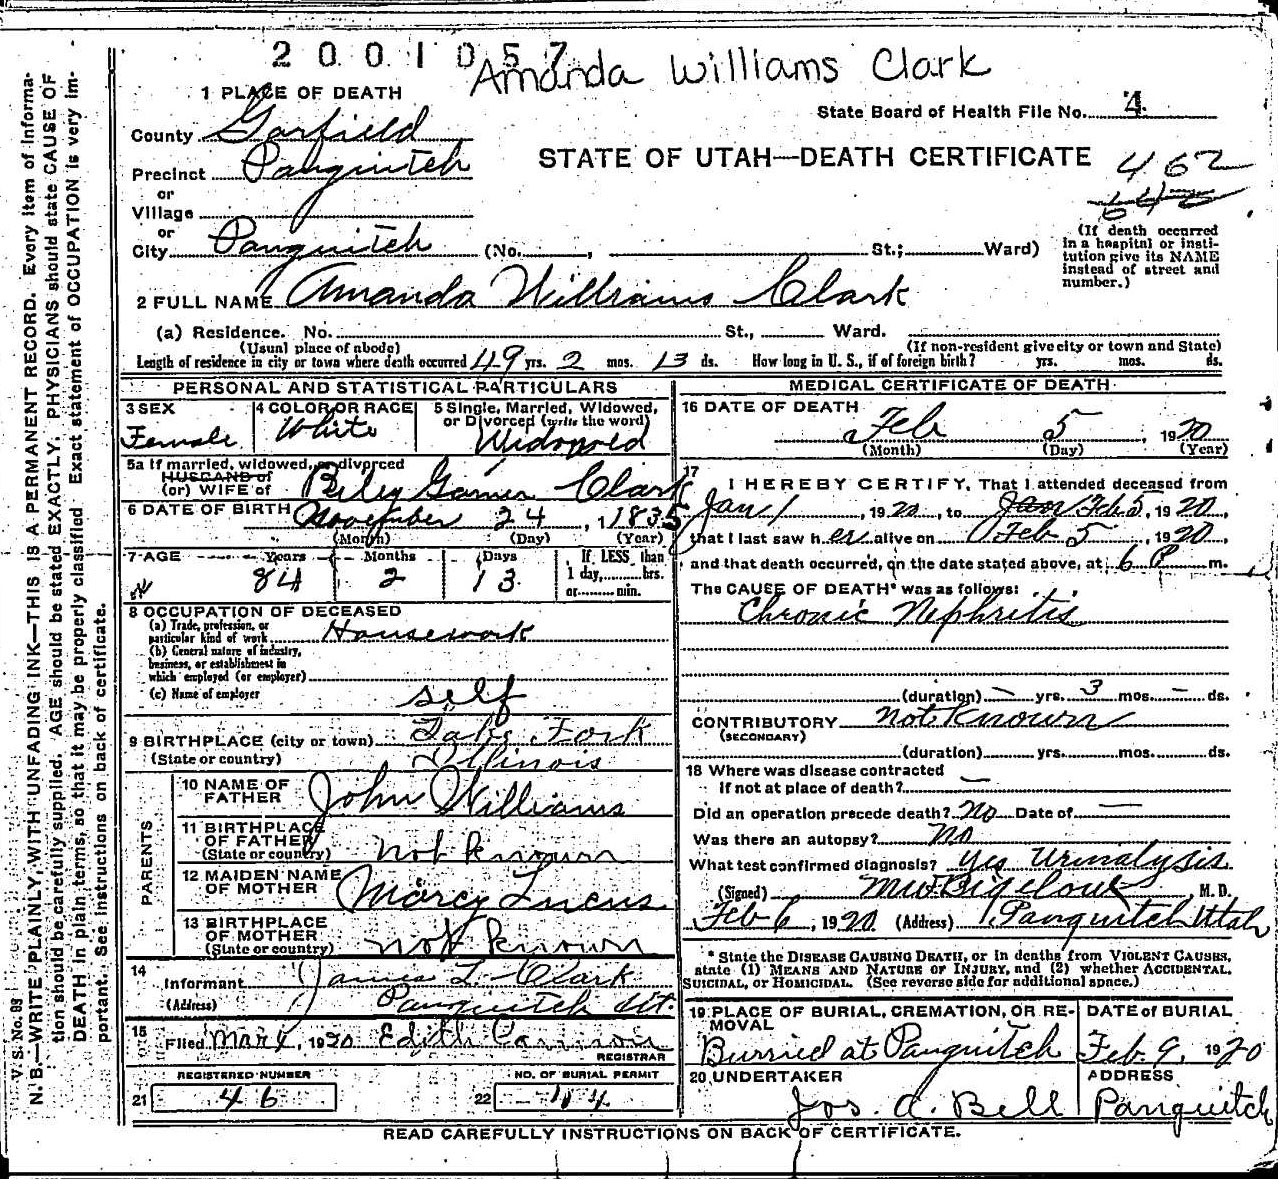 2001057
Amanda Williams Clark
1 PLACE OF DEATH
State Board of Health File No. 4
County Garfield
STATE OF UTAH—DEATH CERTIFICATE
462
Precinct Panguitch
or
Village
or
City Panguitch (No. , St.; Ward)
(If death occurred
in a hospital or insti-
tution give its NAME
instead of street and
number.)
2 FULL NAME Amanda Williams Clark
(a) Residence. No. St., Ward.
(Usual place of abode) (If non-resident give city or town and State)
Length of residence in city or town where death occurred 49 yrs. 2 mos. 13 ds. How long in U. S., if of foreign birth? yrs. mos. ds.
PERSONAL AND STATISTICAL PARTICULARS
3 SEX
Female
4 COLOR OR RACE
White
5 Single, Married, Widowed,
or Divorced (write the word)
Widowed
5a If married, widowed, or divorced
HUSBAND of
(or) WIFE of Riley Garner Clark
6 DATE OF BIRTH November 24, 1835
(Month) (Day) (Year)
7 AGE Years Months Days If LESS than
84 2 13 1 day, hrs.
or min.
8 OCCUPATION OF DECEASED
(a) Trade, profession, or
particular kind of work Housework
(b) General nature of industry,
business, or establishment in
which employed (or employer)
(c) Name of employer self
9 BIRTHPLACE (city or town) Lake Fork
(State or country) Illinois
PARENTS
10 NAME OF
FATHER John Williams
11 BIRTHPLACE
OF FATHER
(State or country) not known
12 MAIDEN NAME
OF MOTHER Marcy Lucus
13 BIRTHPLACE
OF MOTHER
(State or country) not known
14
Informant James L. Clark
(Address) Panguitch Ut.
15
Filed Mar 4, 1920 Edith
REGISTRAR
REGISTERED NUMBER NO. OF BURIAL PERMIT
21 46 22 104
MEDICAL CERTIFICATE OF DEATH
16 DATE OF DEATH
Feb 5, 1920
(Month) (Day) (Year)
17
I HEREBY CERTIFY, That I attended deceased from
Jan 1, 1920, to Jan Feb 5, 1920,
that I last saw her alive on Feb 5, 1920,
and that death occurred, on the date stated above, at 6 P m.
The CAUSE OF DEATH* was as follows:
Chronic Nephritis
(duration) — yrs. 3 mos. — ds.
CONTRIBUTORY not known
(SECONDARY)
(duration) yrs. mos. ds.
18 Where was disease contracted
if not at place of death? —
Did an operation precede death? No Date of —
Was there an autopsy? No
What test confirmed diagnosis? yes Urinalysis
(Signed) M.W. Bigelow, M. D.
Feb 6, 1920 (Address) Panguitch Utah
* State the DISEASE CAUSING DEATH, or in deaths from VIOLENT CAUSES,
state (1) MEANS AND NATURE OF INJURY, and (2) whether ACCIDENTAL,
SUICIDAL, or HOMICIDAL. (See reverse side for additional space.)
19 PLACE OF BURIAL, CREMATION, OR RE-
MOVAL
Burried at Panguitch
DATE of BURIAL
Feb. 9, 1920
20 UNDERTAKER
Jos. A. Bell
ADDRESS
Panguitch
READ CAREFULLY INSTRUCTIONS ON BACK OF CERTIFICATE.
V. S. No. 98
N. B.—WRITE PLAINLY, WITH UNFADING INK—THIS IS A PERMANENT RECORD. Every item of informa-
tion should be carefully supplied. AGE should be stated EXACTLY. PHYSICIANS should state CAUSE OF
DEATH in plain terms, so that it may be properly classified. Exact statement of OCCUPATION is very im-
portant. See instructions on back of certificate.